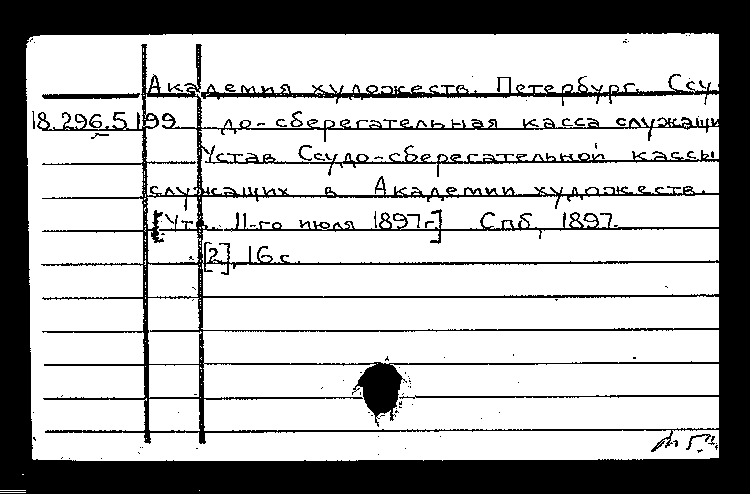 Академия художеств. Петербург. Ссу-
18.296.5.199 до-сберегательная касса служащи
Устав Ссудо-сберегательной кассы
служащих в Академии художеств.
[Утв. 11-го июля 1897г.] Спб, 1897.
[2], 16 с.